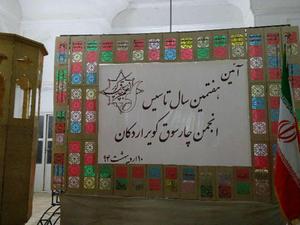 آئین
هفتمین سال تاسیس
انجمن چارسوق کویر اردکان
۱۰ اردیبهشت ۹۴